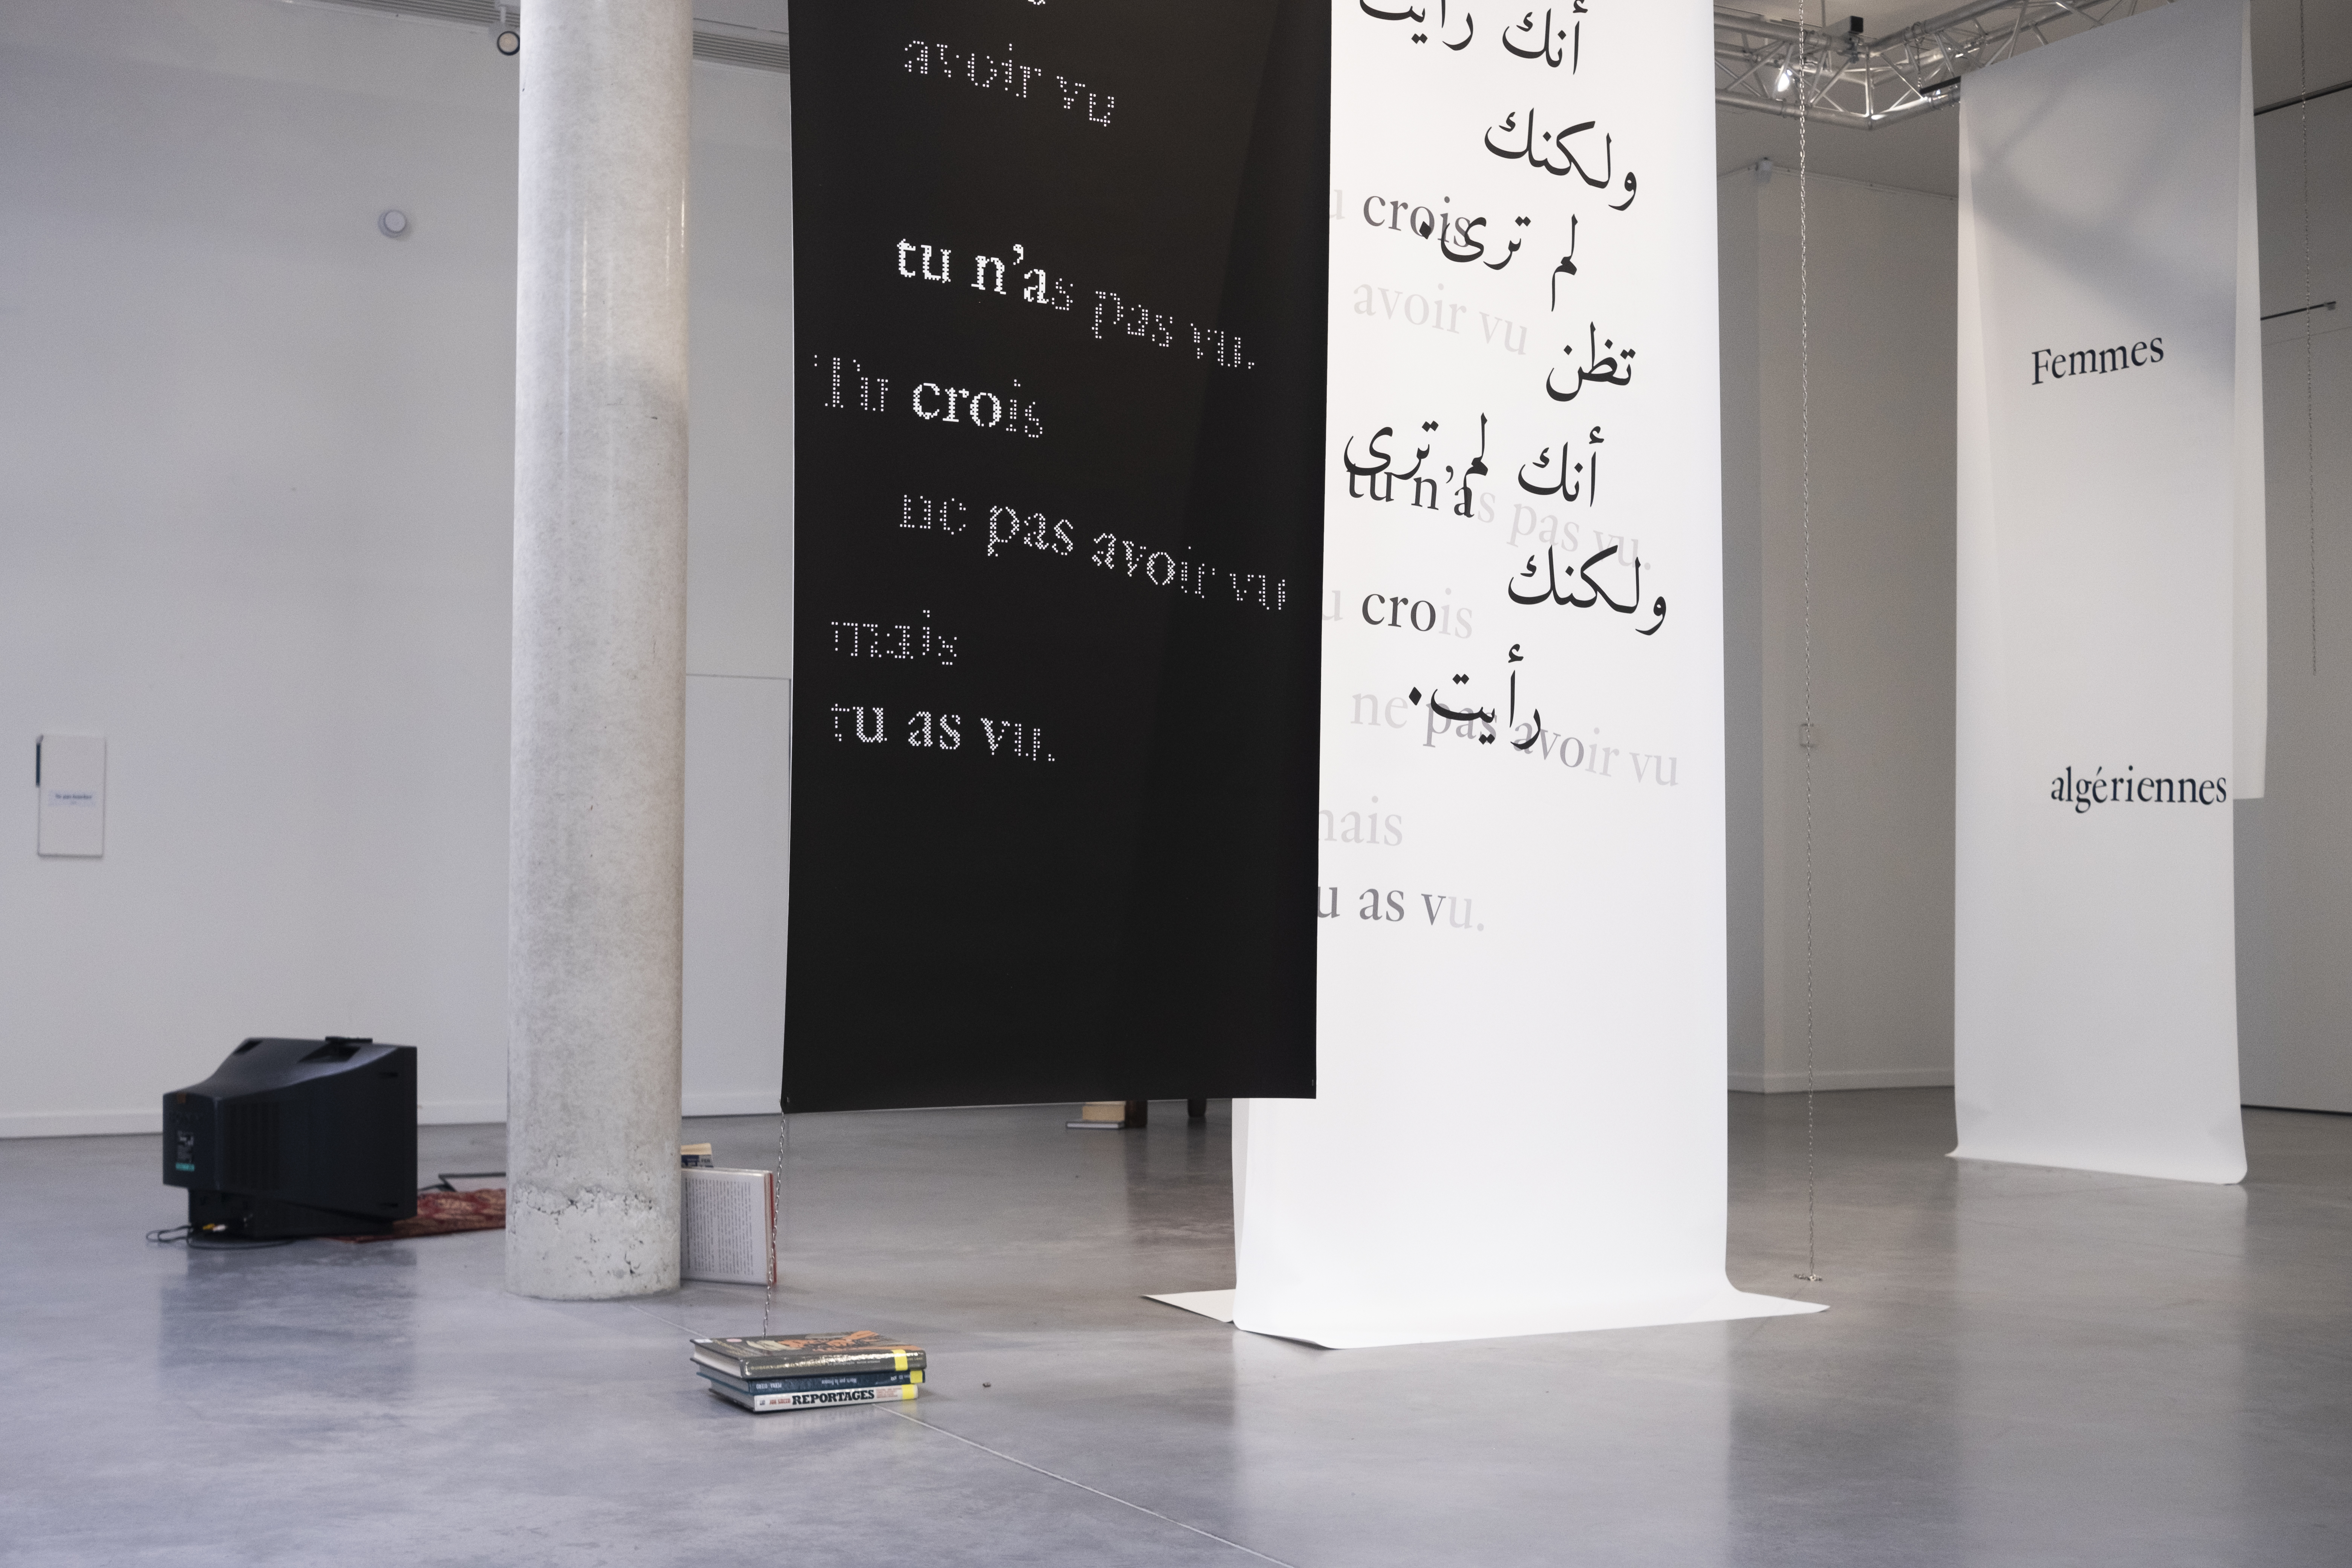 avoir vu
tu n'as pas vu.
Tu crois
ne pas avoir vu
mais
tu as vu.
أنك رأيت
ولكنك
لم ترى.
تظن
أنك لم ترى
ولكنك
رأيت.
u crois
avoir vu
tu n'as pas vu.
u crois
ne pas avoir vu
mais
u as vu.
Femmes
algériennes
REPORTAGES